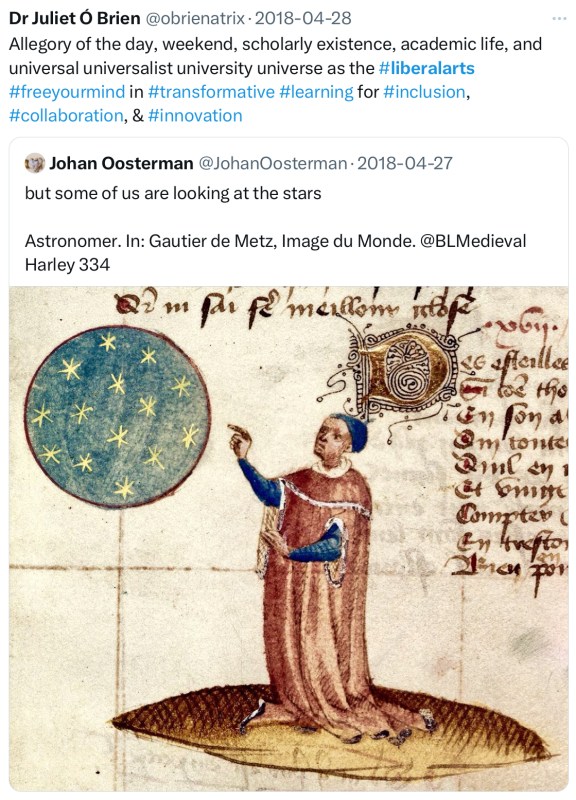 Dr Juliet Ó Brien @obrienatrix · 2018-04-28
Allegory of the day, weekend, scholarly existence, academic life, and
universal universalist university universe as the #liberalarts
#freeyourmind in #transformative #learning for #inclusion,
#collaboration, & #innovation
Johan Oosterman @JohanOosterman · 2018-04-27
but some of us are looking at the stars
Astronomer. In: Gautier de Metz, Image du Monde. @BLMedieval
Harley 334
es esteilles
En son a
Compter